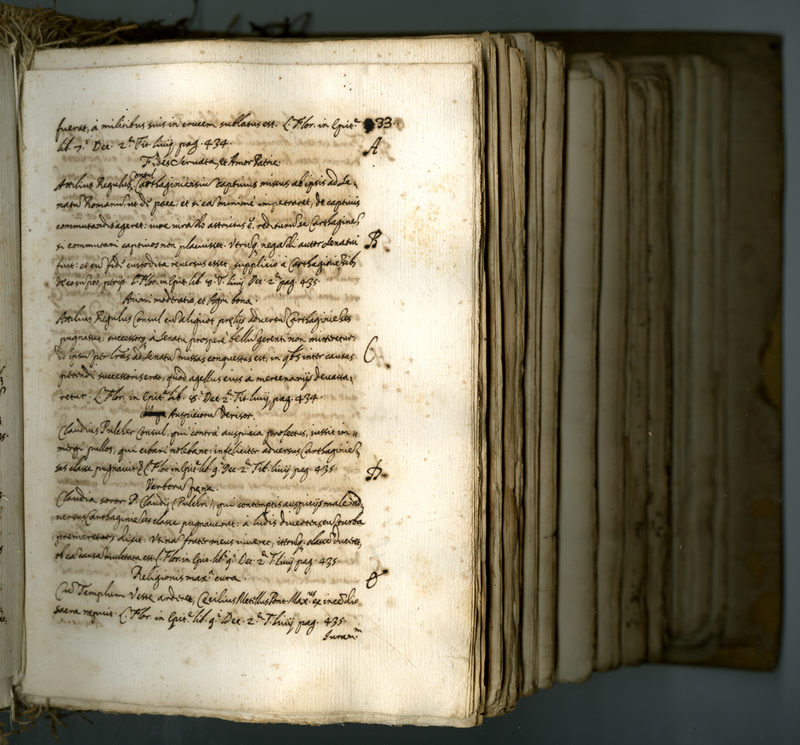 fuerat, à militibus suis in crucem sublatus est. L. Flor. in Epit.
33.
lib. 7. Dec. 2.ᵃ Tit. Liuij pag. 434.
A
Fides Seruata, et Amor Patrie.
Attilius Regulus Consul Carthaginiensiũ captiuus missus ab ipsis ad Se-
natũ Romanũ, ut di pace, et si eã minimè impetraret, de captiuis
commutandis ageret: iure iurãdo astrictus ẽ, rediturũ se Carthaginẽ,
si commutari captiuos non placuisset. Vtriusq. negãdi autor Senatui
B
fuit: et cũ fide custodita reuersus esset, supplicio à Carthaginiẽsib.
L. Flor. in Epit. lib. 18. T. Liuij Dec. 2.ᵃ pag. 435.
Animi moderatio, et bona.
Attilius Regulus Consul cũ aliquot prelijs aduersũ Carthaginiẽses
pugnasset: successor à Senatu prosperè bellũ gerenti non mitteretur,
id ipsũ per lrãs ad Senatũ missas conquestus est, in qbs inter causas
C
petendi successoris erat, quod agellus eius à mercenarijs deuasta-
retur. L. Flor. in Epit. lib. 18. Dec. 2.ᵃ Tit. Liuij pag. 434.
Auspiciorũ Derisor.
Claudius Pulcher Consul, qui contrà auspicia profectus, iussit im-
mergi pullos, qui cibari nolebant: infeliciter aduersus Carthaginiẽ-
ses classe pugnauit. L. Flor. in Epit. lib. 9. Dec. 2.ᵃ Tit. Liuij pag. 435.
D
Verborũ pena.
Claudia soror P. Claudij (Pulcri), qui contemptis auspicijs male ad-
uersus Carthaginiẽses classe pugnauerat: à ludis diuertens cũ turba
premeretur, dixit. Vtinã frater meus uiueret, iterũq. classẽ duceret,
ob eã causã multata est. L. Flor. in Epit. lib. 9. Dec. 2.ᵃ T. Liuij pag. 435.
Religionis maxᵃ cura.
E
Cũ Templum Veste arderet, Cæcilius Metellus Pont. Max.ᵘˢ ex incẽdio
sacra rapuit. L. Flor. in Epit. lib. 9. Dec. 2.ᵃ T. Liuij pag. 435.
Iuramᵐ